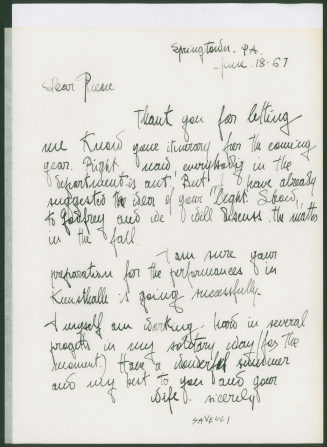 Springtown. PA.
June. 18. 67
Dear Piene
Thank you for letting
me know your itinerary for the coming
year. Right now everybody in the
department is out. But I have already
suggested the idea of your "light show,"
to Godfrey and we will discuss the matter
in the fall.
I am sure your
preparation for the performances in
Kunsthalle is going successfully.
I myself am working hard in several
projects in my solitary way (for the
moment.) Have a wonderful summer
and my best to you and your
wife. sincerely